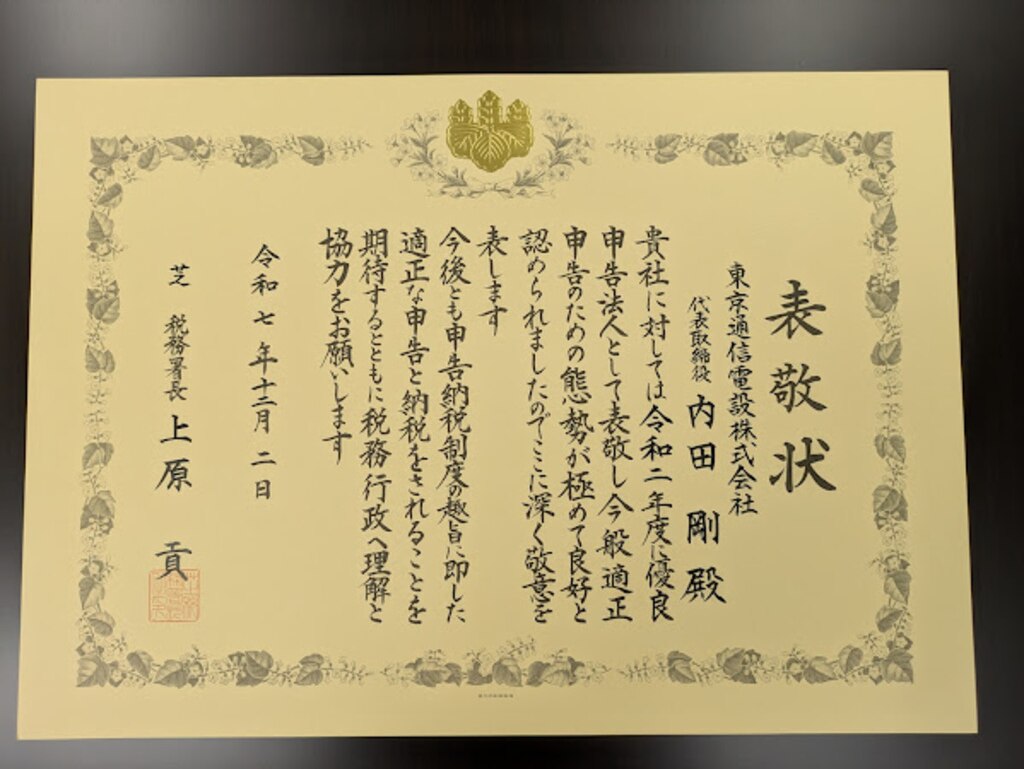 表敬状
東京通信電設株式会社
代表取締役 内田 剛 殿
貴社に対しては令和二年度に優良
申告法人として表敬し今般適正
申告のための態勢が極めて良好と
認められましたのでここに深く敬意を
表します
今後とも申告納税制度の趣旨に即した
適正な申告と納税をされることを
期待するとともに税務行政へ理解と
協力をお願いします
令和七年十二月二日
芝 税務署長 上原 貢